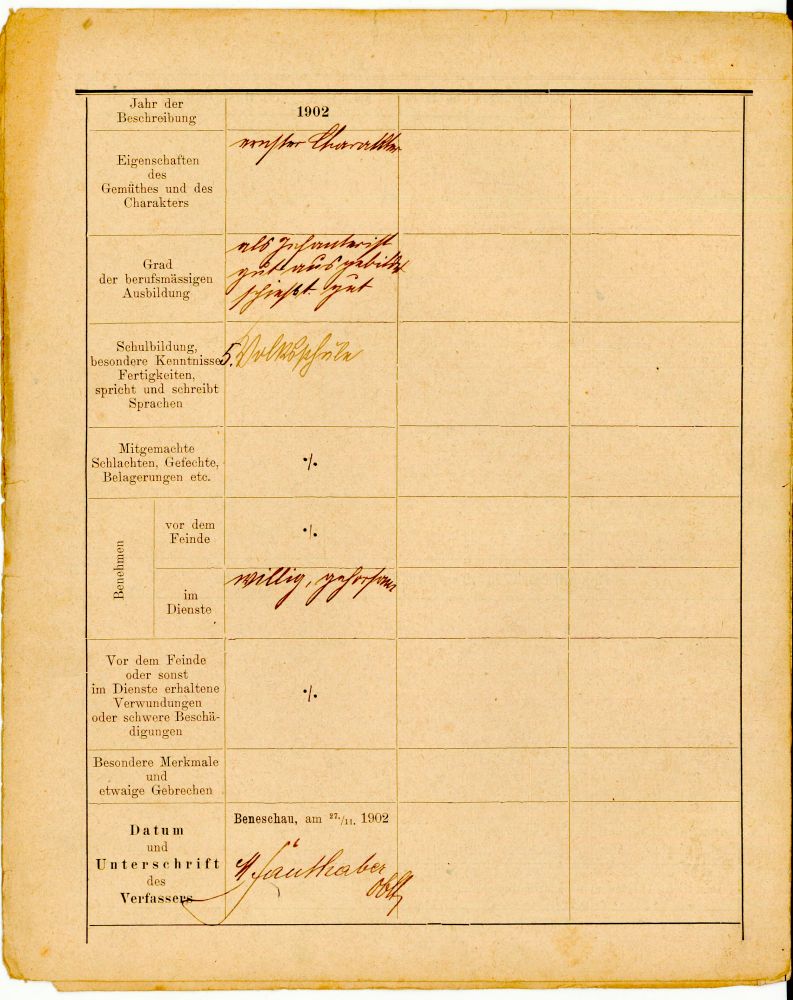 Jahr der
Beschreibung
1902
Eigenschaften
des
Gemüthes und des
Charakters
ernster Charakter
Grad
der berufsmässigen
Ausbildung
als Infanterist
gut ausgebildet
schießt gut
Schulbildung,
besondere Kenntnisse
Fertigkeiten,
spricht und schreibt
Sprachen
5. Volksschule
Mitgemachte
Schlachten, Gefechte,
Belagerungen etc.
·/.
Benehmen
vor dem
Feinde
·/.
im
Dienste
willig, gehorsam
Vor dem Feinde
oder sonst
im Dienste erhaltene
Verwundungen
oder schwere Beschä-
digungen
·/.
Besondere Merkmale
und
etwaige Gebrechen
Datum
und
Unterschrift
des
Verfassers
Beneschau, am 27./11. 1902